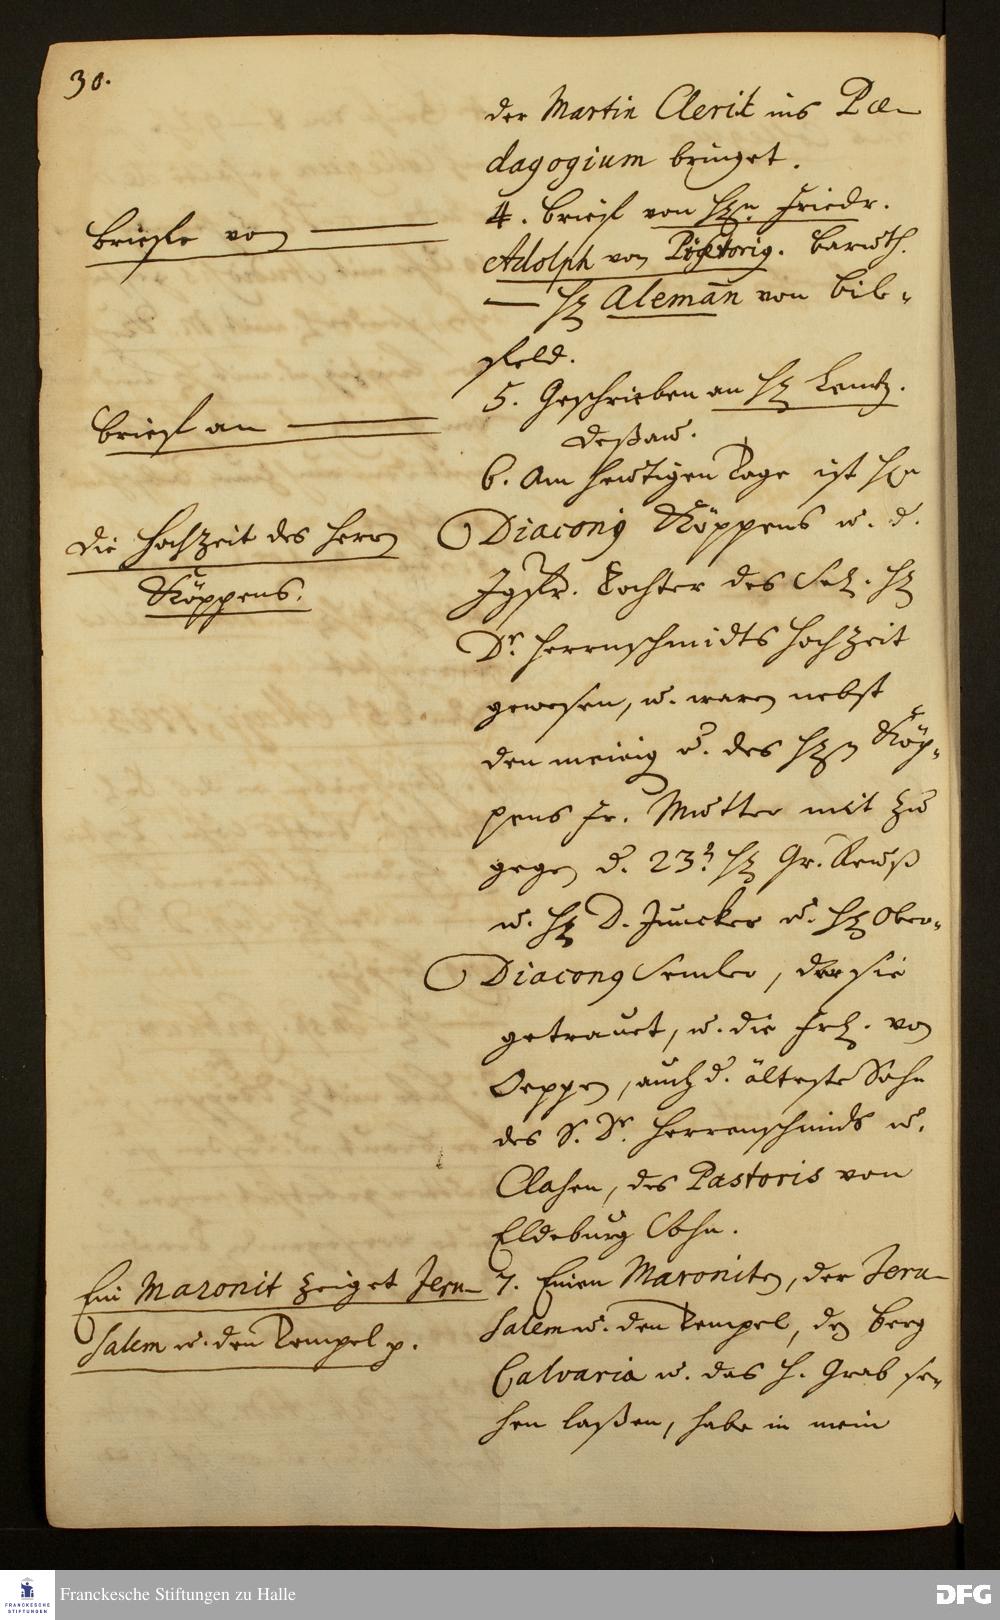 30.
der Martin Clerik ins Pæ-
dagogium bringet.
Briefe von
4. Brief von Hrn. Friedr.
Adolph von Barūth.
— H Alemān von Bile-
feld.
Brief an
5. Geschrieben an H Lentz.
Deßaw.
6. Am heutigen Tage ist Hrn
Die Hochzeit des Herrn
Köppens.
Diacong Köppens u. d.
Jgfr. Tochter des Sel. H
Dr. Herrnschmidts Hochzeit
gewesen, u. waren nebst
den meinig u. des Hrn Köp-
pens Fr. Mutter mit zu
gegen d. 23t H Gr. Reuß
u. H D. Juncker u. H Ober-
Diacong Semler, der sie
getrauet, u. die Frl. von
Oeppen, auch d. älteste Sohn
des S. Dr. Herrenschmids u.
Clasen, des Pastoris von
Eldeburg Sohn.
Ein Maronit zeiget Jeru-
salem u. den Tempel p.
7. Einen Maroniten, der Jeru-
salem u. den Tempel, den Berg
Calvaria u. das H. Grab se-
hen laßen, habe in mein
Franckesche Stiftungen zu Halle
FRANCKESCHE
STIFTUNGEN
DFG